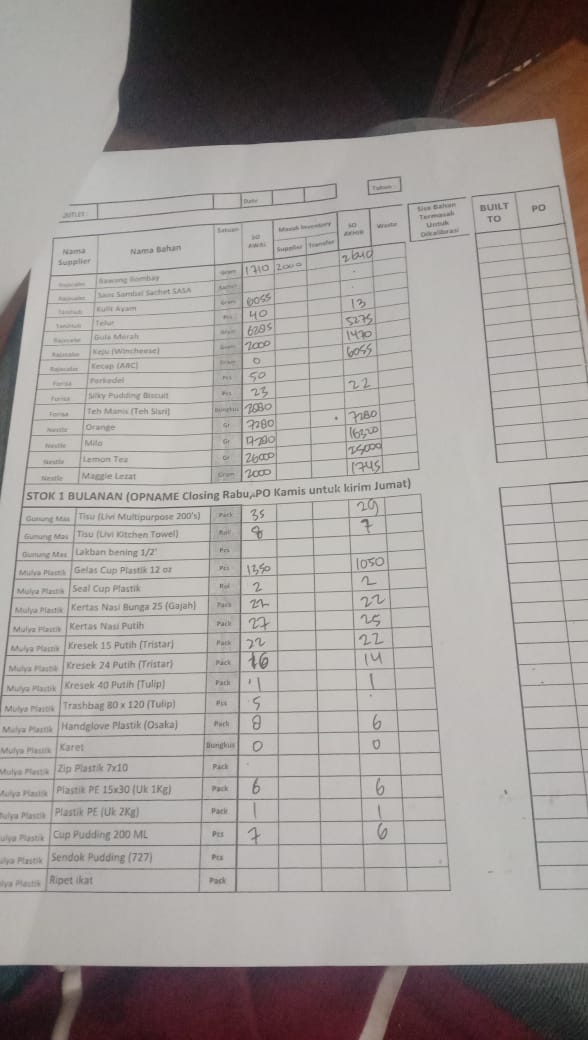 OUTLET : Date Tahun :
Nama Supplier Nama Bahan Satuan SO AWAL Masuk Inventory Supplier Transfer SO AKHIR Waste Sisa Bahan Termasuk Untuk Dikalibrasi BUILT TO PO
Bawang Bombay Gram 1710 2000 2640
Saos Sambal Sachet SASA Sachet
Kulit Ayam Gram 6055
Telur Pcs 40 13
Gula Merah Gram 6285 5275
Keju (Wincheese) Gram 2000 1470
Kecap (ABC) Gram 0 6055
Forisa Perkedel Pcs 50
Forisa Silky Pudding Biscuit Pcs 23 22
Forisa Teh Manis (Teh Sisri) Bungkus 2080
Nestle Orange Gr 7280 7280
Nestle Milo Gr 17280 16320
Nestle Lemon Tea Gr 26000 25000
Nestle Maggie Lezat Gram 2000 1745
STOK 1 BULANAN (OPNAME Closing Rabu, PO Kamis untuk kirim Jumat)
Gunung Mas Tisu (Livi Multipurpose 200's) Pack 35 29
Gunung Mas Tisu (Livi Kitchen Towel) Roll 8 7
Gunung Mas Lakban bening 1/2' Pcs
Mulya Plastik Gelas Cup Plastik 12 oz Pcs 1350 1050
Mulya Plastik Seal Cup Plastik Rol 2 2
Mulya Plastik Kertas Nasi Bunga 25 (Gajah) Pack 22 22
Mulya Plastik Kertas Nasi Putih Pack 27 25
Mulya Plastik Kresek 15 Putih (Tristar) Pack 22 22
Mulya Plastik Kresek 24 Putih (Tristar) Pack 16 14
Mulya Plastik Kresek 40 Putih (Tulip) Pack 1 1
Mulya Plastik Trashbag 80 x 120 (Tulip) Pcs 5
Mulya Plastik Handglove Plastik (Osaka) Pack 8 6
Mulya Plastik Karet Bungkus 0 0
Mulya Plastik Zip Plastik 7x10 Pack
Mulya Plastik Plastik PE 15x30 (Uk 1Kg) Pack 6 6
Mulya Plastik Plastik PE (Uk 2Kg) Pack 1 1
ulya Plastik Cup Pudding 200 ML Pcs 7 6
ulya Plastik Sendok Pudding (727) Pcs
lya Plastik Ripet ikat Pack